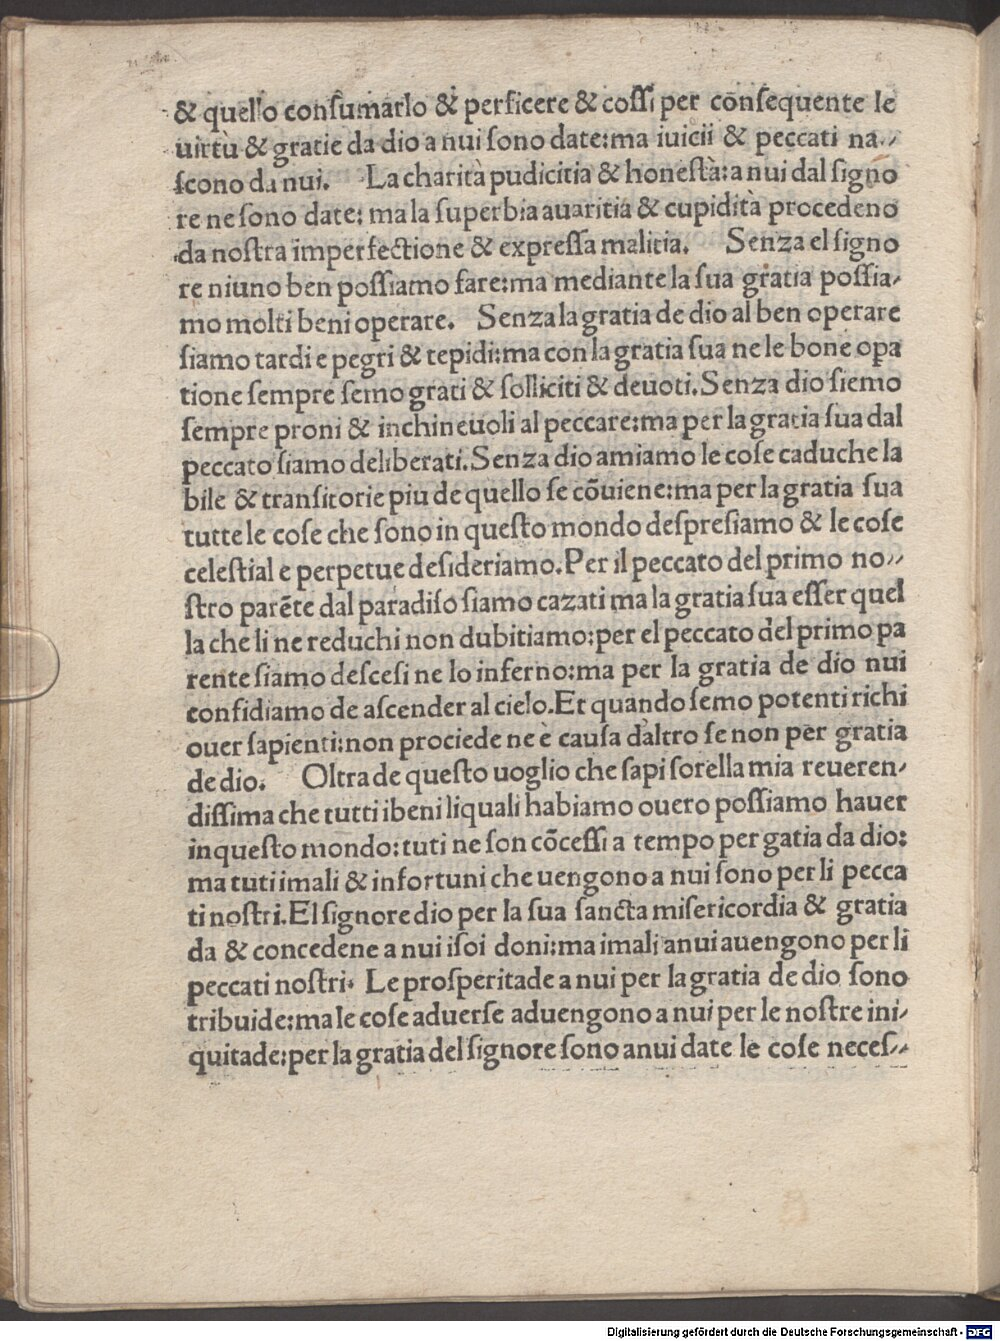 & quello conſumarlo & perficere & coſſi per cōnſequente le
uirtù & gratie da dio a nui ſono date: ma iuicii & peccati na⸗
ſcono da nui. La charità pudicitia & honeſtà: a nui dal ſigno
re ne ſono date: ma la ſuperbia auaritia & cupidità procedeno
da noſtra imperfectione & expreſſa malitia. Senza el ſigno
re niuno ben poſſiamo fare: ma mediante la ſua gratia poſſia⸗
mo molti beni operare. Senza la gratia de dio al ben operare
ſiamo tardi e pegri & tepidi: ma con la gratia ſua ne le bone opa
tione ſempre ſemo grati & ſolliciti & deuoti. Senza dio ſiemo
ſempre proni & inchineuoli al peccare: ma per la gratia ſua dal
peccato ſiamo deliberati. Senza dio amiamo le coſe caduche la
bile & tranſitorie piu de quello ſe cōuiene: ma per la gratia ſua
tutte le coſe che ſono in queſto mondo deſpreſiamo & le coſe
celeſtial e perpetue deſideriamo. Per il peccato del primo no⸗
ſtro parēte dal paradiſo ſiamo cazati ma la gratia ſua eſſer quel
la che li ne reduchi non dubitiamo: per el peccato del primo pa
rente ſiamo deſceſi ne lo inferno: ma per la gratia de dio nui
confidiamo de aſcender al cielo. Et quando ſemo potenti richi
ouer ſapienti: non prociede ne è cauſa daltro ſe non per gratia
de dio. Oltra de queſto uoglio che ſapi ſorella mia reueren⸗
diſſima che tutti i beni liquali habiamo ouero poſſiamo hauer
in queſto mondo: tuti ne ſon cōceſſi a tempo per gatia da dio:
ma tuti imali & infortuni che uengono a nui ſono per li pecca
ti noſtri. El ſignore dio per la ſua ſancta miſericordia & gratia
da & concedene a nui iſoi doni: ma imali anui auengono per li
peccati noſtri. Le proſperitade a nui per la gratia de dio ſono
tribuide: ma le coſe aduerſe aduengono a nui per le noſtre ini⸗
quitade: per la gratia del ſignore ſono anui date le coſe neceſ⸗
Digitalisierung gefördert durch die Deutsche Forschungsgemeinschaft - DFG